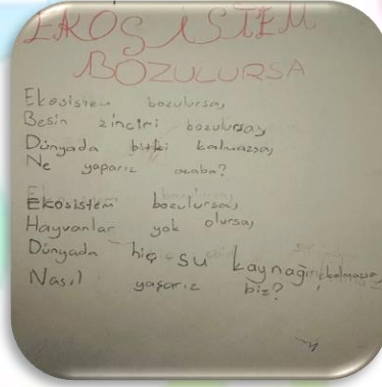 EKOSİSTEM
BOZULURSA
Ekosistem bozulursa,
Besin zinciri bozulursa,
Dünyada bitki kalmazsa,
Ne yaparız acaba?
Ekosistem bozulursa,
Hayvanlar yok olursa,
Dünyada hiç su kaynağı kalmazsa,
Nasıl yaşarız biz?